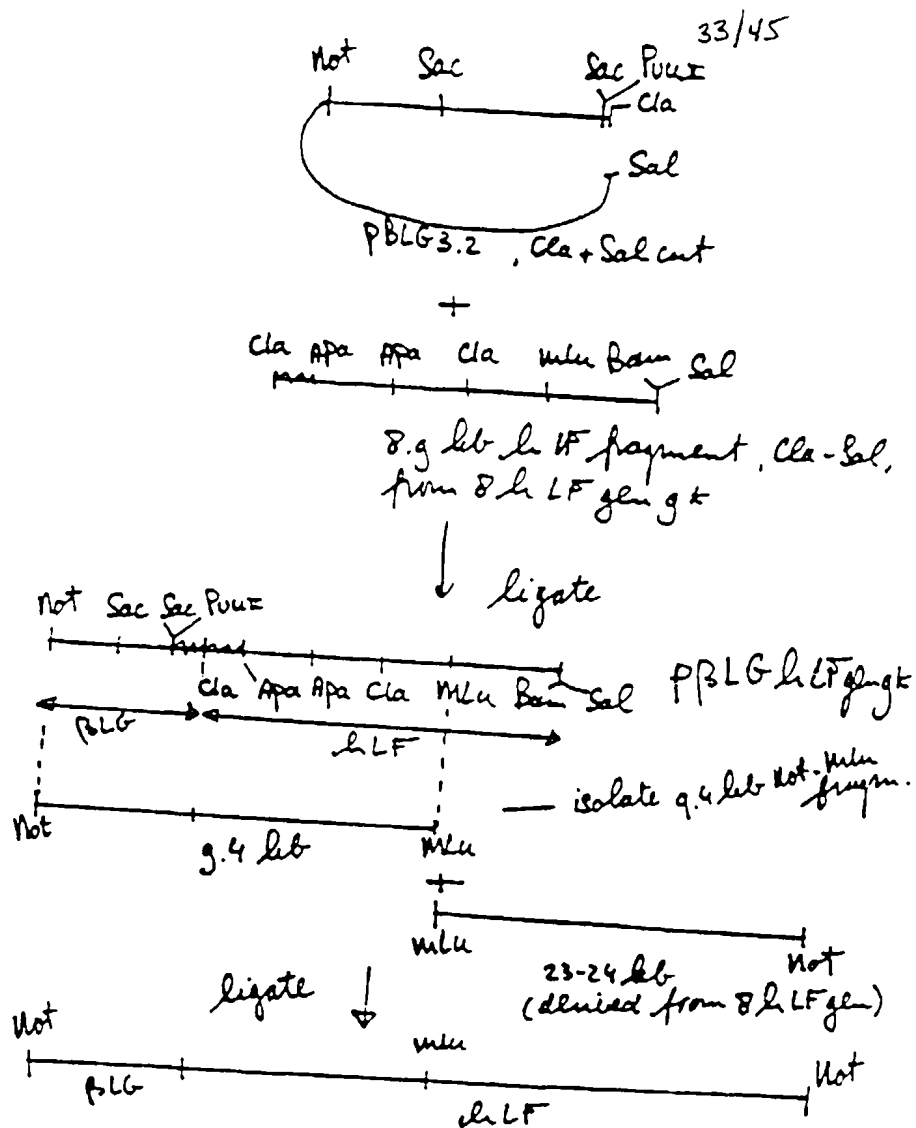 33/45
Not Sac Sac PvuII
Cla
Sal
pBLG3.2, Cla + Sal cut
+
Cla Apa Apa Cla mLu Bam Sal
8.9 kb hLF fragment, Cla-Sal,
from 8hLFgengk
ligate
Not Sac Sac PvuII
Cla Apa Apa Cla mLu Bam Sal pβLGhLFgengk
βLG hLF
isolate 9.4 kb Not-mLu
fragm.
Not 9.4 kb mLu
+
mLu Not
23-24 kb
(derived from 8hLFgen)
ligate
Not mLu Not
βLG hLF